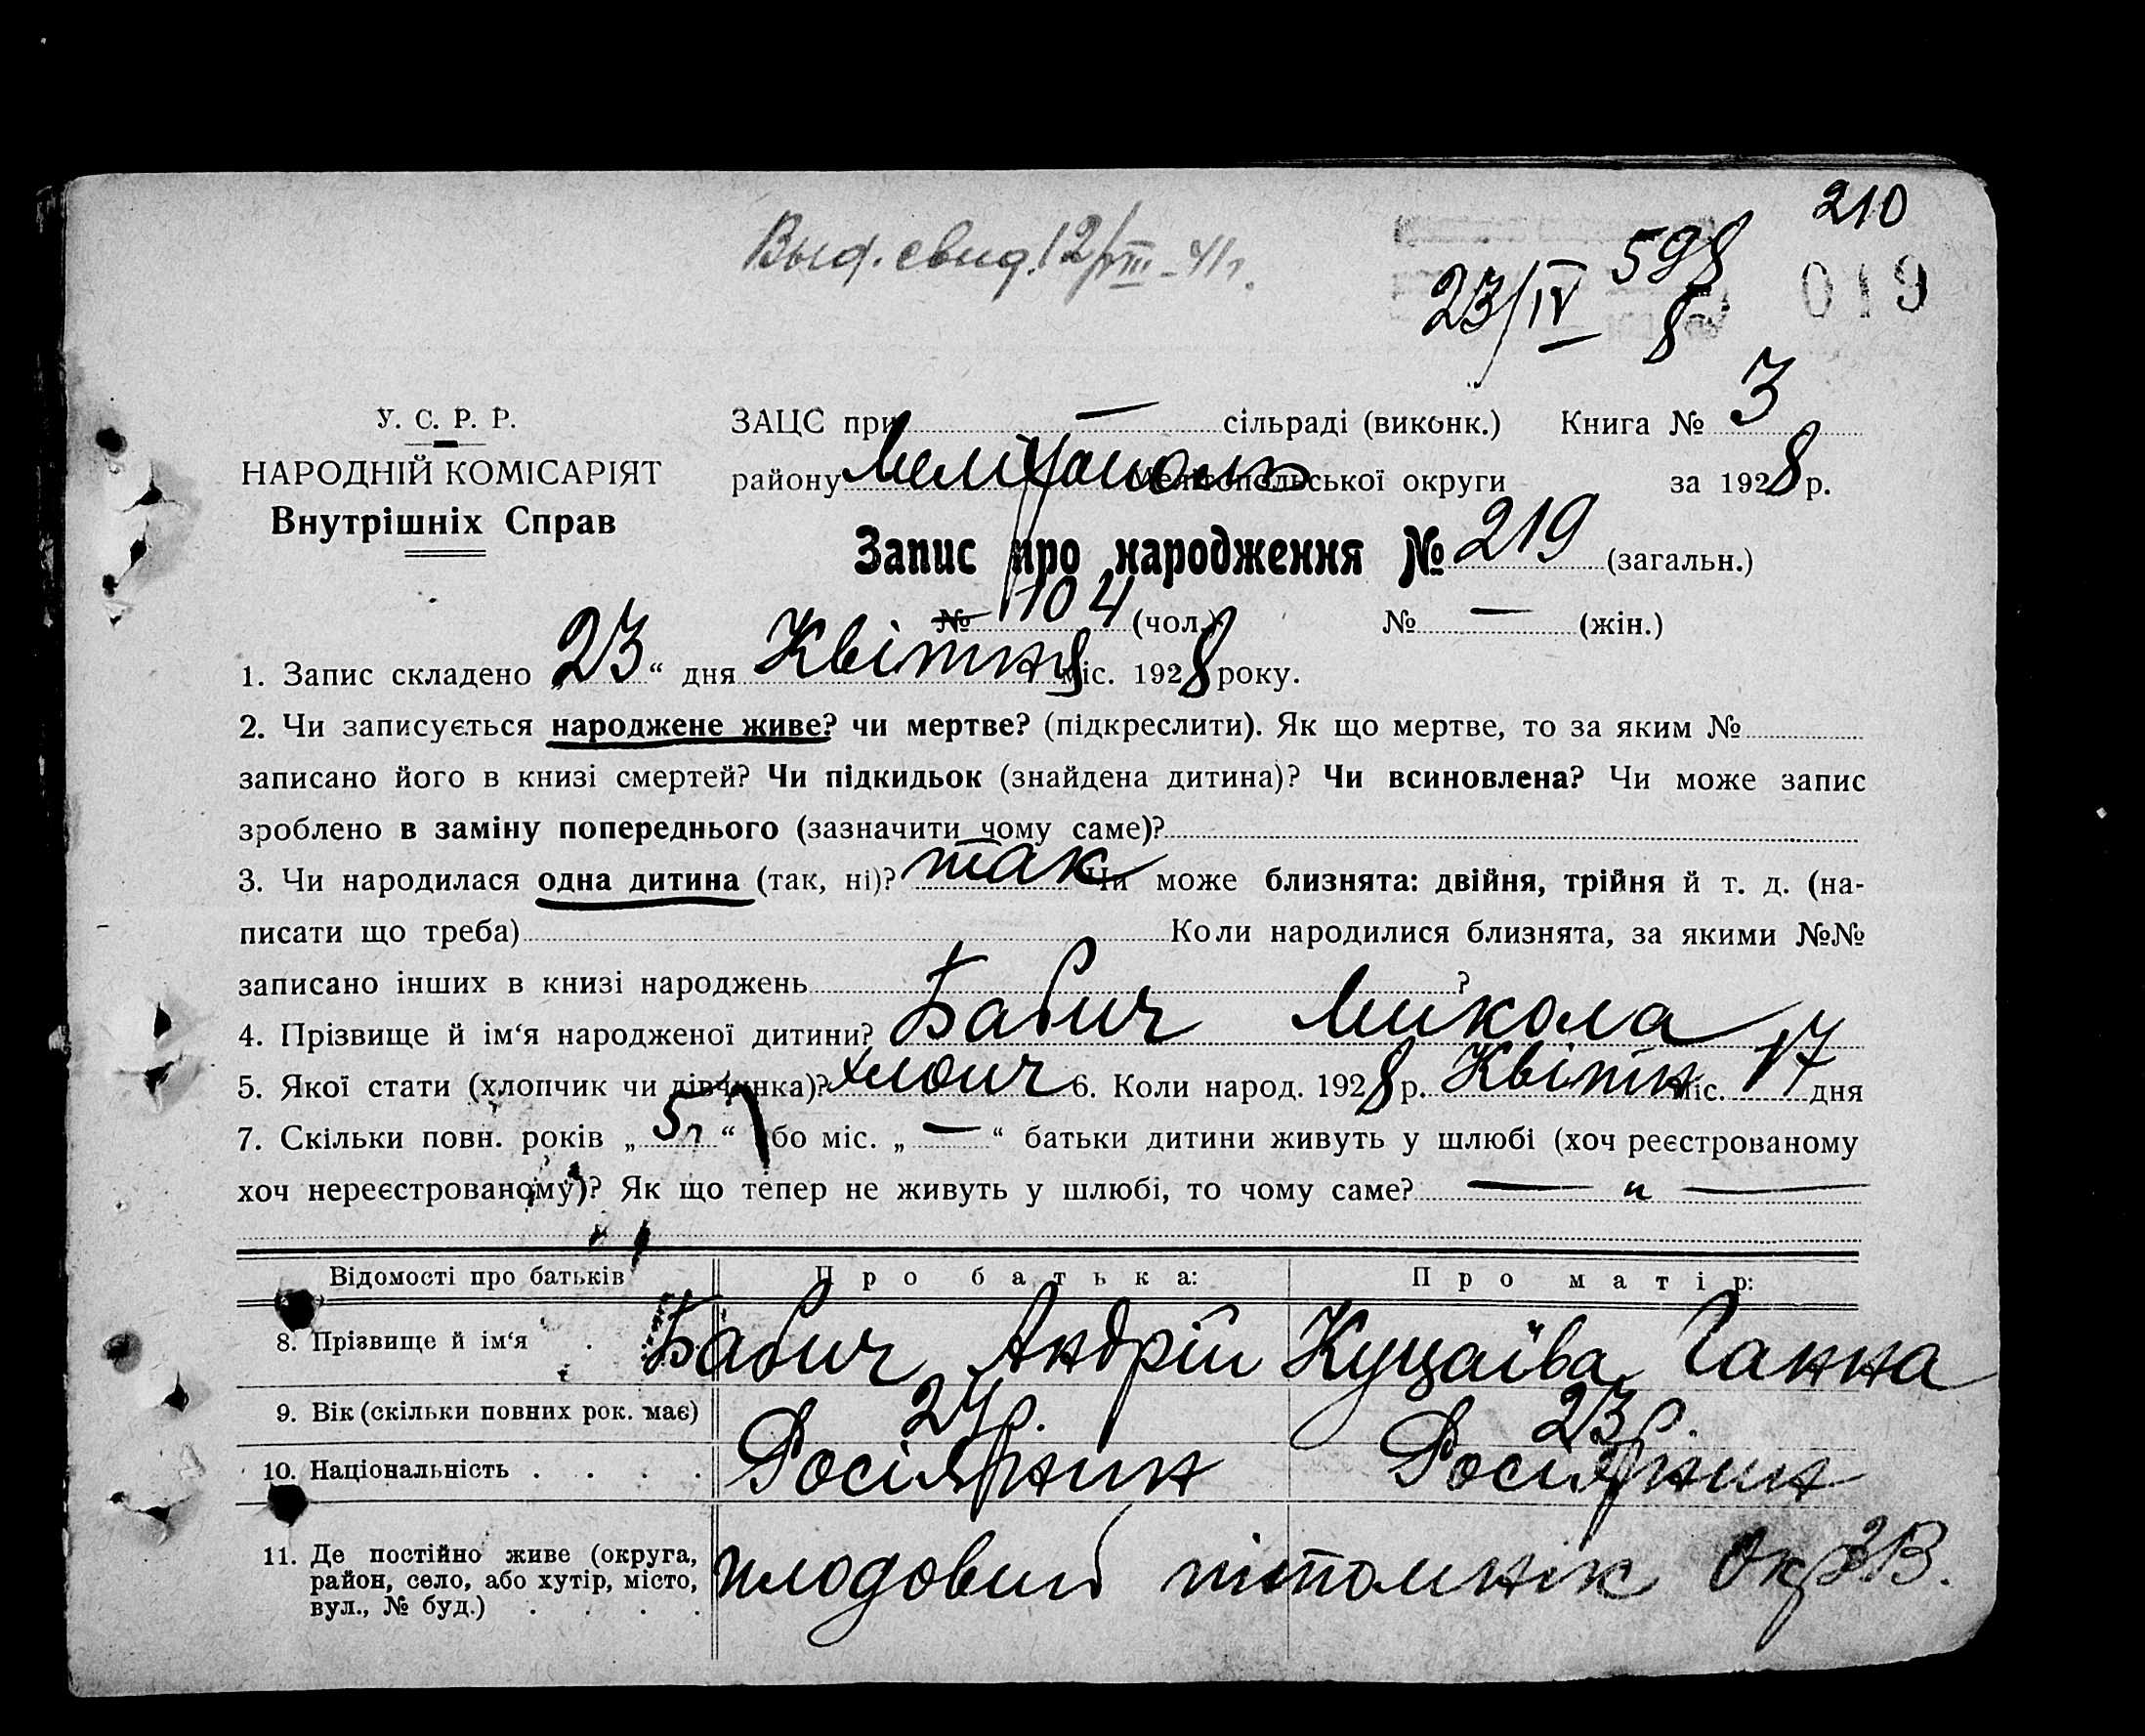 210
Выд. свид. 12/VIII - 41 г.
598
23/IV 8
019
У. С. Р. Р.
НАРОДНІЙ КОМІСАРІЯТ
Внутрішніх Справ
ЗАЦС при — сільраді (виконк.) Книга № 3
району Мелітополь Мелітопольської округи за 1928 р.
Запис про народження № 219 (загальн.)
№ 104 (чол.) № — (жін.)
1. Запис складено „23“ дня Квітня міс. 1928 року.
2. Чи записується народжене живе? чи мертве? (підкреслити). Як що мертве, то за яким №
записано його в книзі смертей? Чи підкидьок (знайдена дитина)? Чи всиновлена? Чи може запис
зроблено в заміну попереднього (зазначити чому саме)?
3. Чи народилася одна дитина (так, ні)? так Чи може близнята: двійня, трійня й т. д. (на-
писати що треба) Коли народилися близнята, за якими №№
записано інших в книзі народжень ?
4. Прізвище й ім‘я народженої дитини? Бабич Микола
5. Якої стати (хлопчик чи дівчинка)? хлопч 6. Коли народ. 1928 р. Квітн міс. 17 дня
7. Скільки повн. років „5 р“ або міс. „—“ батьки дитини живуть у шлюбі (хоч реєстрованому
хоч нереєстрованому)? Як що тепер не живуть у шлюбі, то чому саме? — „ —
Відомості про батьків Про батька: Про матір:
8. Прізвище й ім‘я . Бабич Андрій Куцаїва Ганна
9. Вік (скільки повних рок. має) 24 р. 23 р.
10. Національність . . . . Росіянин Росіянин
11. Де постійно живе (округа, район, село, або хутір, місто, вул., № буд.) . . . . плодовий пітомнік ОкрЗВ.